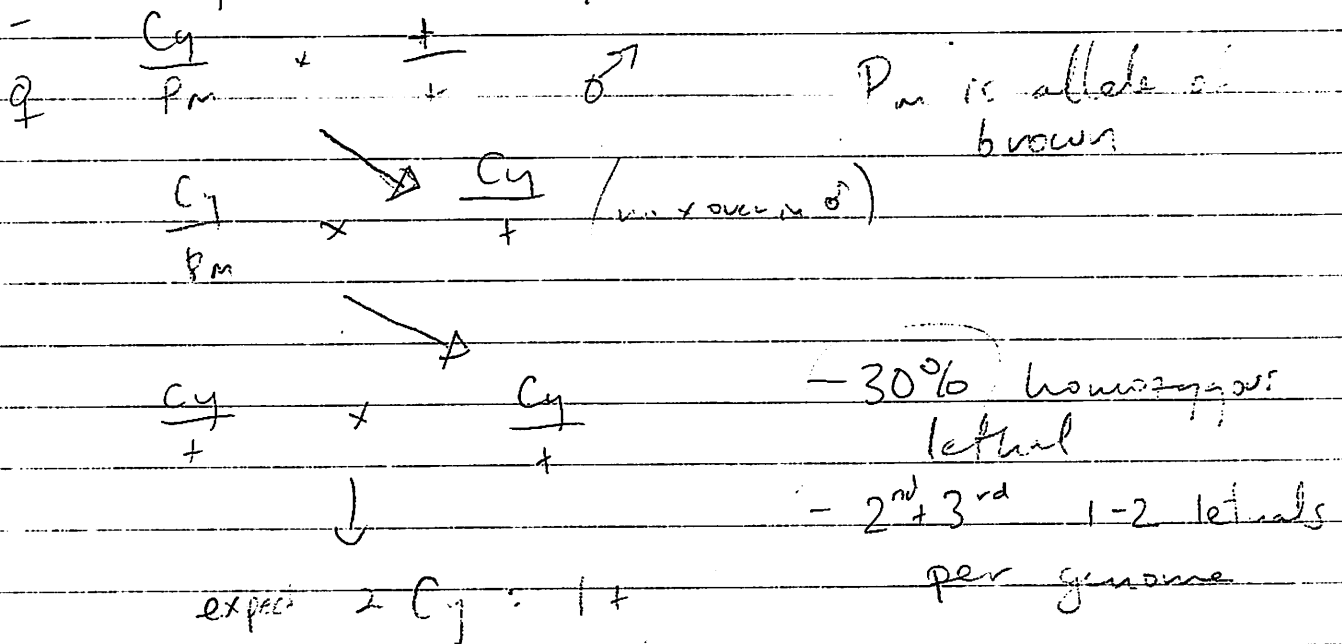 - Cy + 
♀ Pm × + ♂ Pm is allele
brown
Cy Cy
Pm × + (no xover in ♂)
Cy × Cy - 30% homozygous
+ + lethal
- 2nd + 3rd 1-2 lethals
per genome
expect 2 Cy : 1 +